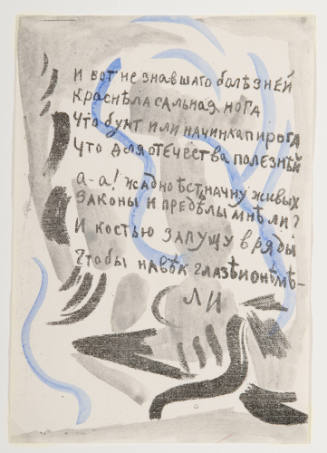 И вот не знавшаго болѣзней
Краснѣла сальная нога
Что бунт или начинка пирога
Что для отечества полезнѣй
а-а! жадно ѣст начну живых
Законы и предѣлы мнѣ ли?
И костью запущу в ряды
Чтобы навѣк глазѣ онѣмѣ-
ЛИ